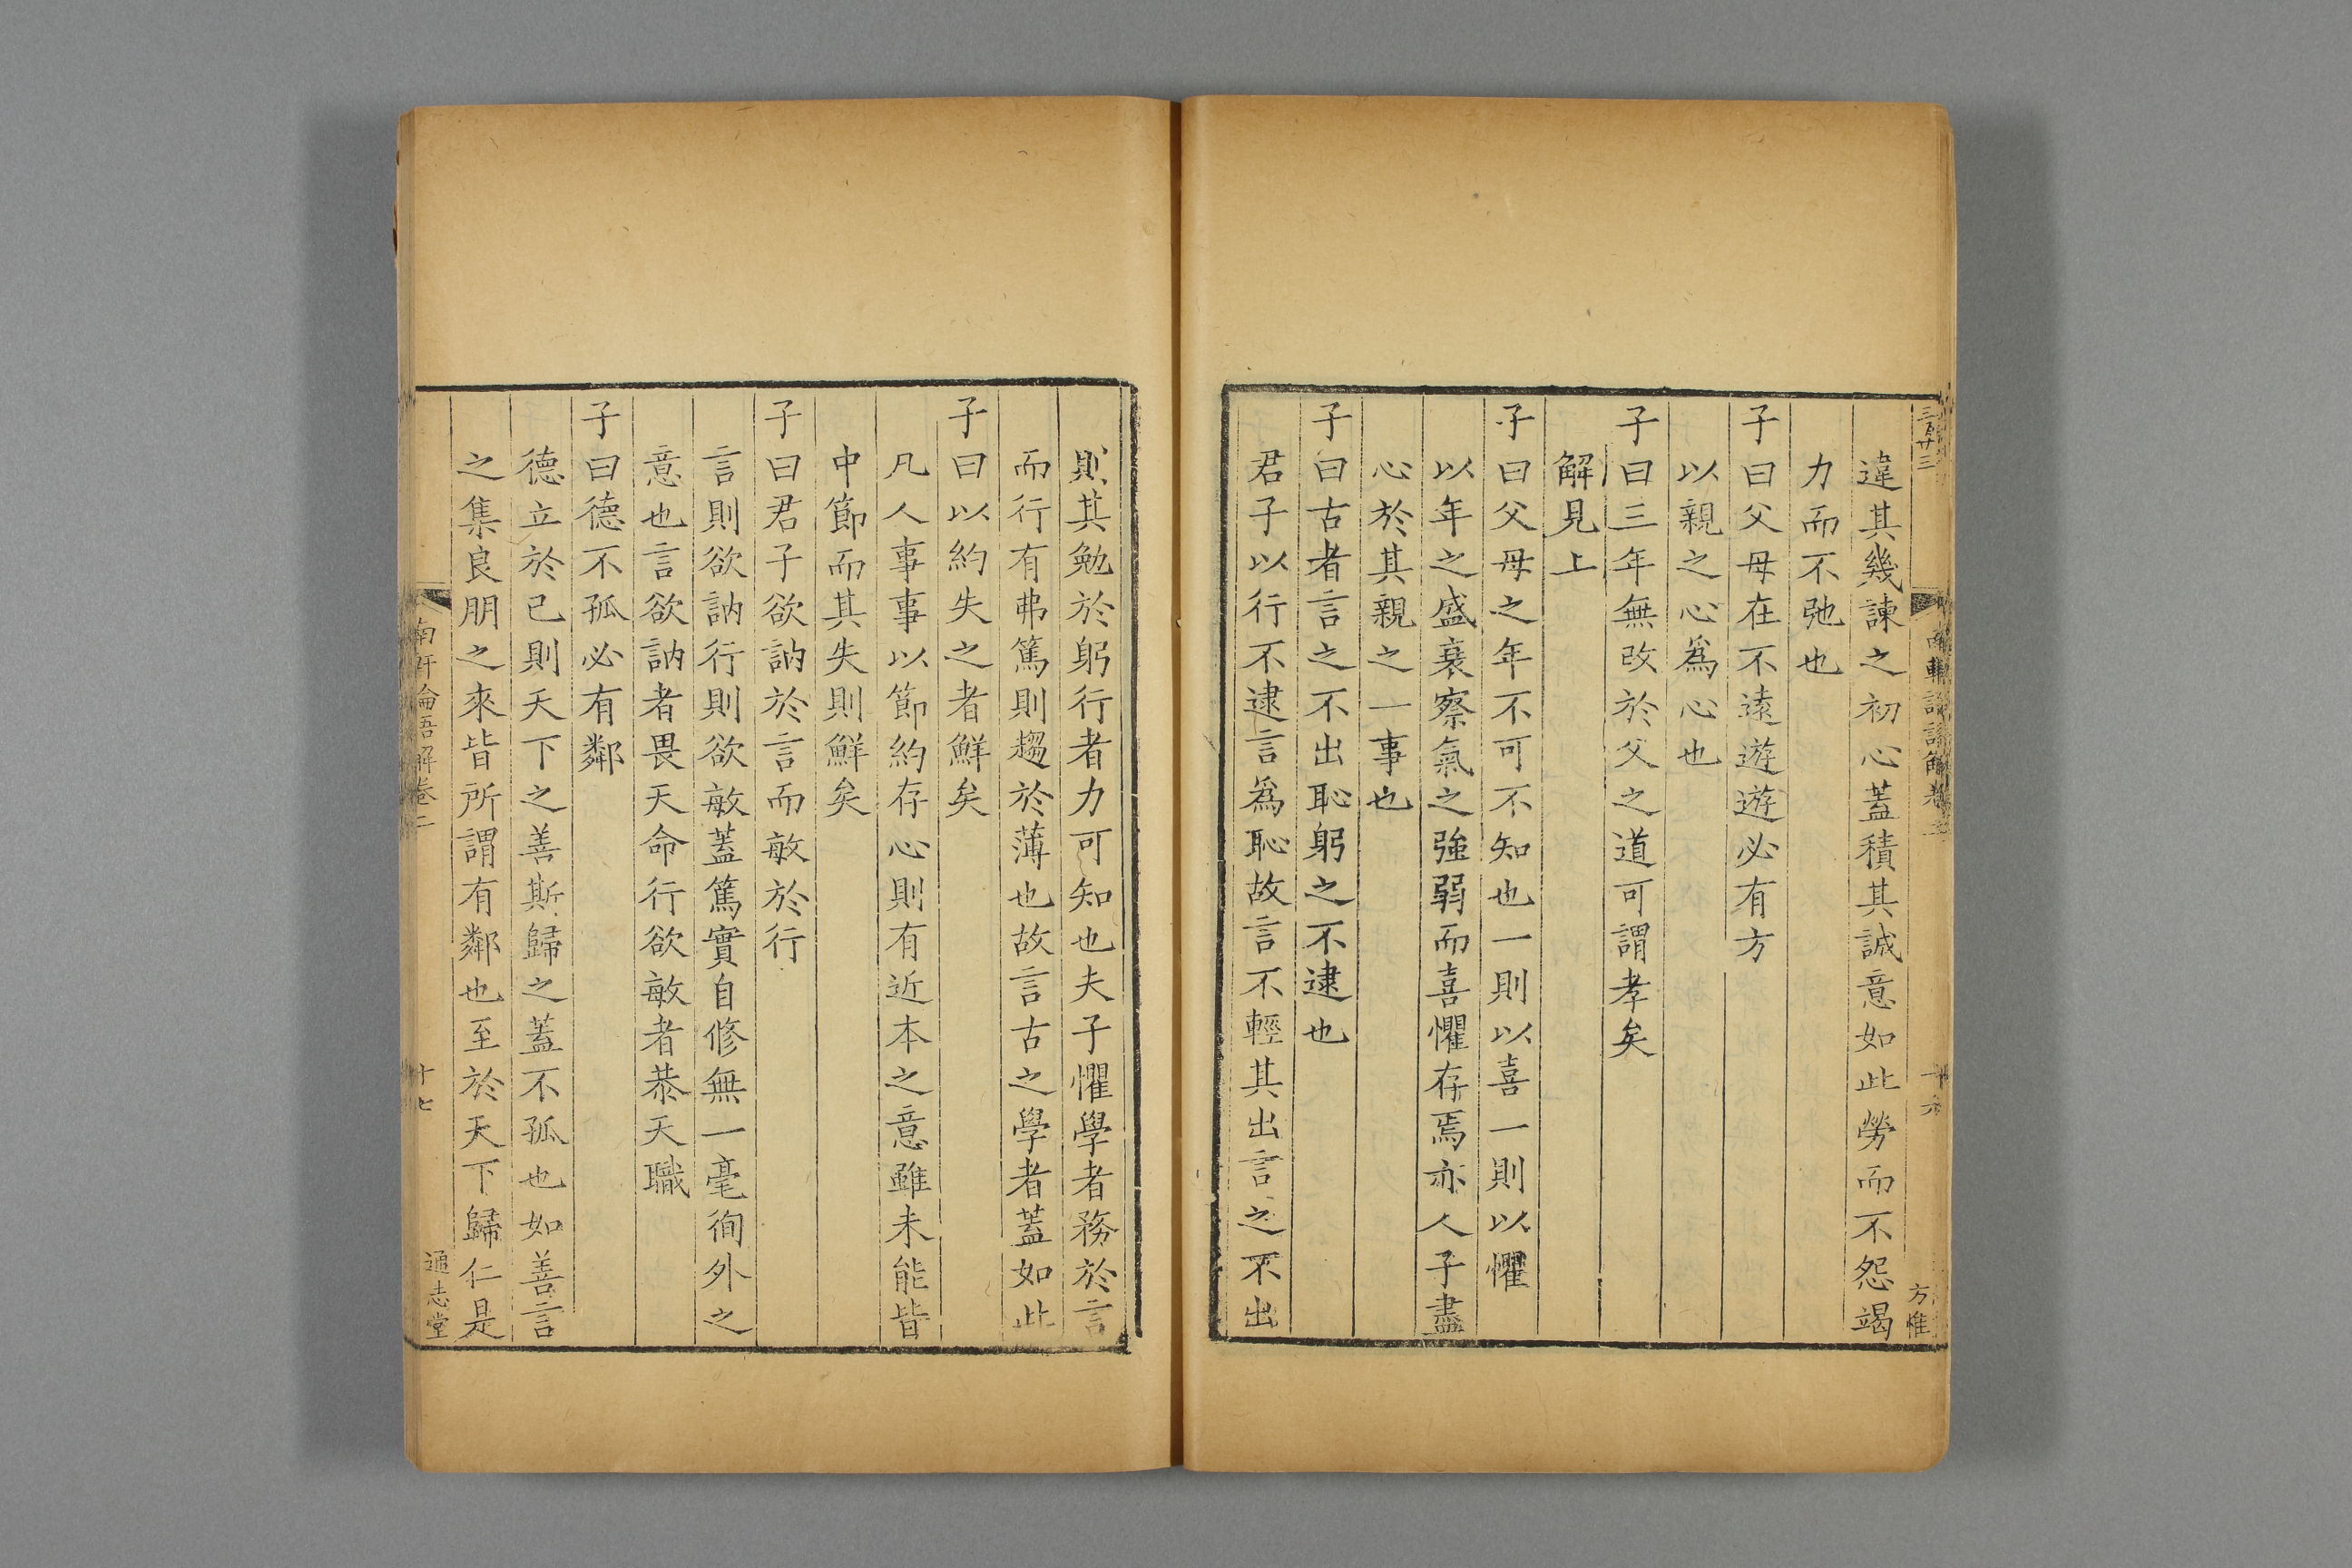 違其幾諫之初心蓋積其誠意如此勞而不怨竭
力而不弛也
子曰父母在不遠遊遊必有方
以親之心爲心也
子曰三年無改於父之道可謂孝矣
解見上
子曰父母之年不可不知也一則以喜一則以懼
以年之盛衰察氣之強弱而喜懼存焉亦人子盡
心於其親之一事也
子曰古者言之不出恥躬之不逮也
君子以行不逮言爲恥故言不輕其出言之不出
則其勉於躬行者力可知也夫子懼學者務於言
而行有弗篤則趨於薄也故言古之學者蓋如此
子曰以約失之者鮮矣
凡人事事以節約存心則有近本之意雖未能皆
中節而其失則鮮矣
子曰君子欲訥於言而敏於行
言則欲訥行則欲敏蓋篤實自修無一毫徇外之
意也言欲訥者畏天命行欲敏者恭天職
子曰德不孤必有鄰
德立於己則天下之善斯歸之蓋不孤也如善言
之集良朋之來皆所謂有鄰也至於天下歸仁是
南軒論語解卷二
十七
通志堂